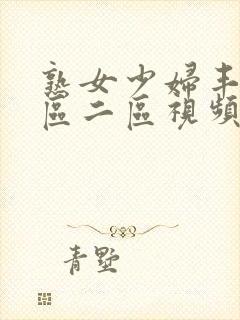 熟女少婦丰
區二區視頻
青墅